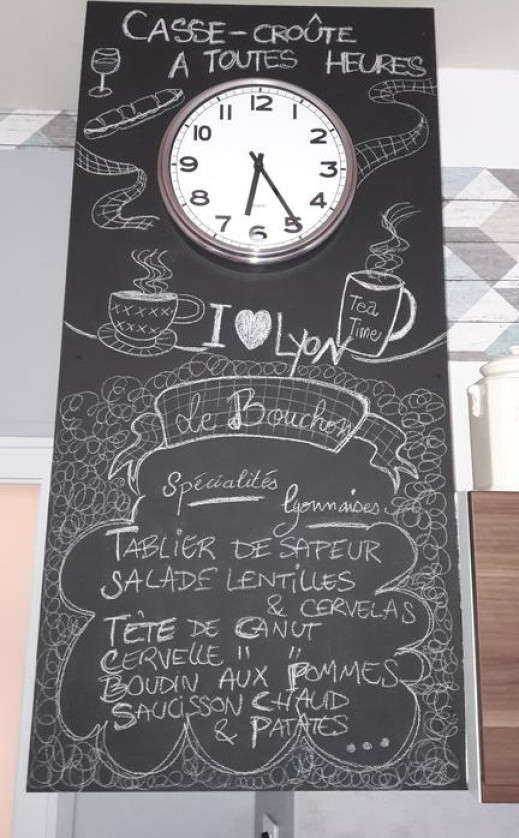 CASSE-CROÛTE
A TOUTES HEURES
12
11 1
10 2
9 3
8 4
7 5
6
I ♥ LYON
Tea
Time
Le Bouchon
Spécialités
lyonnaises
TABLIER DE SAPEUR
SALADE LENTILLES
& CERVELAS
TÊTE DE CANUT
CERVELLE " "
BOUDIN AUX POMMES
SAUCISSON CHAUD
& PATATES
...